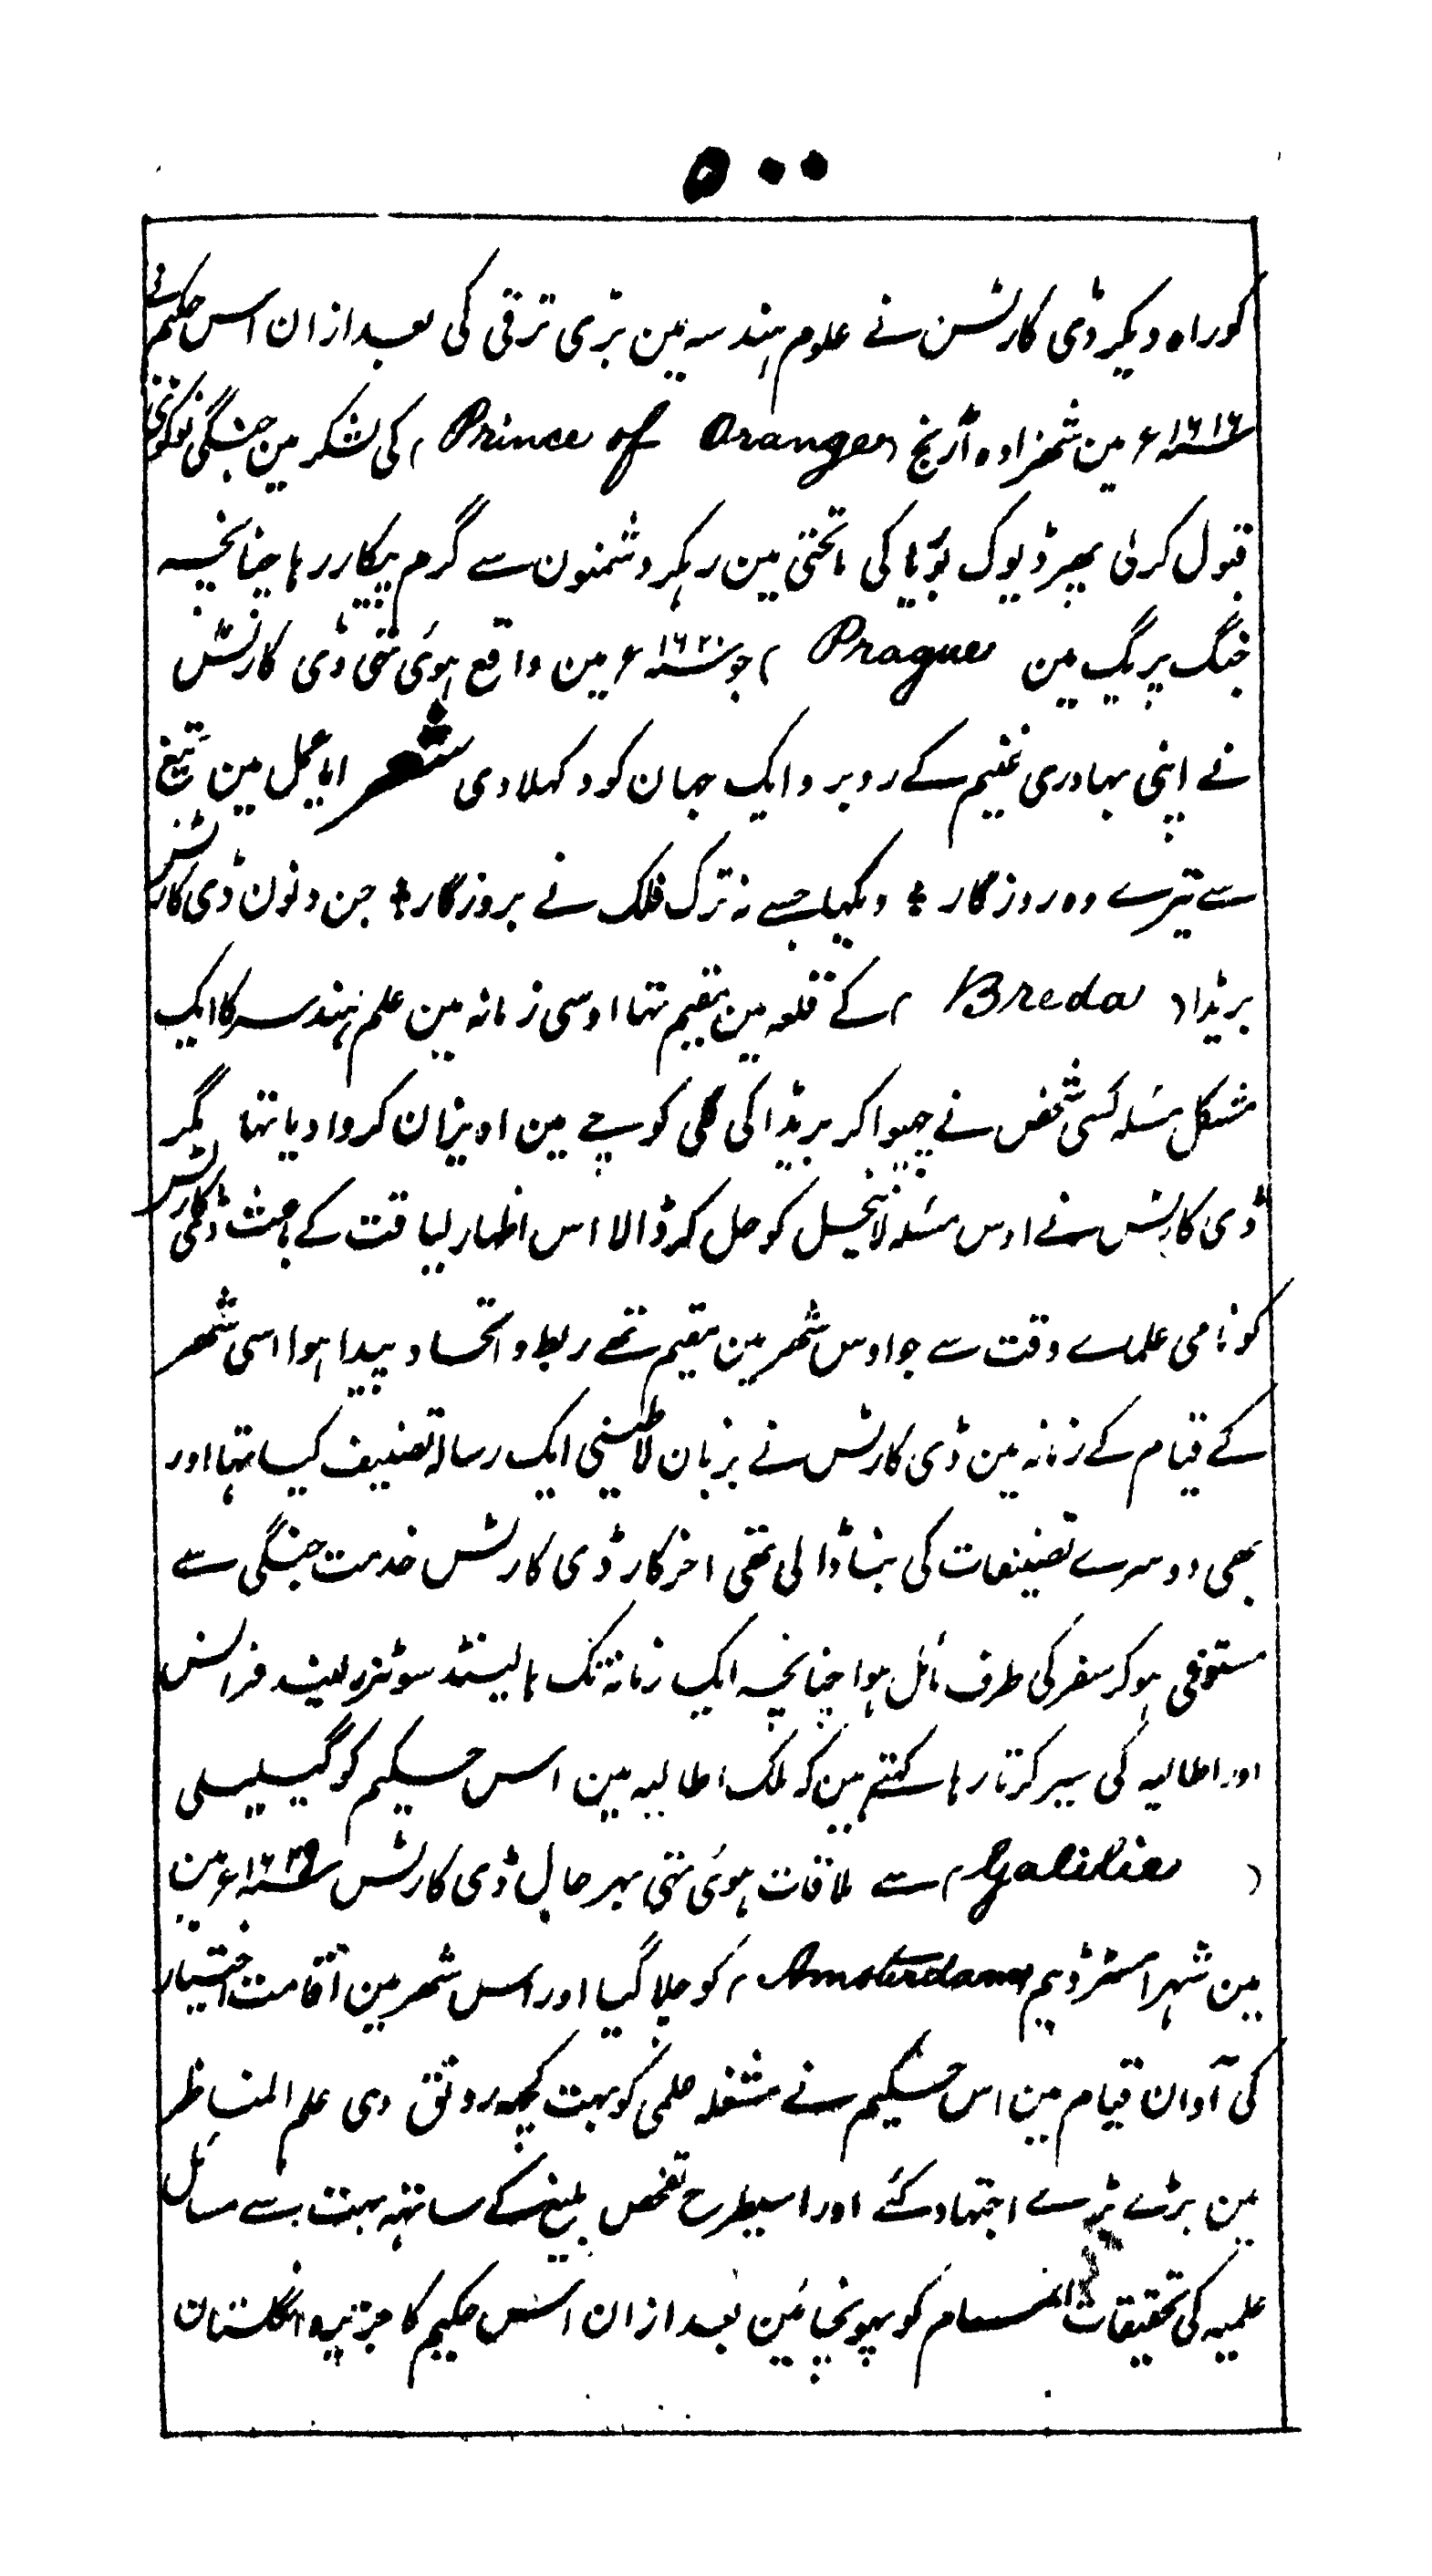 ۵۰۰
کوراہ دیکر ڈی کارٹس نے علوم ہندسہ مین بڑی ترقی کی بعد ازان اس حکیم نے
سنہ ۱۶۱۶ء مین شہزادہ آرنج (Prince of Orange) کی لشکر مین جنگی نوکری
قبول کرلی پھر ڈیوک بَوَیا کی ماتحتی مین رہکر دشمنون سے گرم پیکار رہا چنانچہ
جنگ پریگ مین Prague) جو سنہ ۱۶۲۰ء مین واقع ہوئی تہی ڈی کارٹس
نے اپنی بہادری غنیم کے روبرو ایک جہان کو دکہلادی شعر ایا عمل مین تیغ
سے تیرے وہ روزگار ؞ دیکہا جسے نہ ترک فلک نے بروزگار ؞ جن دنون ڈی کارٹس
بریڈا (Breda) کے قلعہ مین مقیم تہا اوسی زمانہ مین علم ہندسہ کا ایک
مشکل مسئلہ کسی شخص نے چہپوا کر بریڈا کی گلی کوچے مین اویزان کروا دیا تہا مگر
ڈی کارٹس نے اوس مسئلہ لاینحل کو حل کر ڈالا اس اظہار لیاقت کے باعث ڈی کارٹس
کو نامی علماے وقت سے جو اوس شھر مین مقیم تھے ربط و اتحاد پیدا ہوا اسی شھر
کے قیام کے زمانہ مین ڈی کارٹس نے بزبان لاطینی ایک رسالہ تصنیف کیا تہا اور
بھی دوسرے تصنیفات کی بنا ڈالی تھی اخرکار ڈی کارٹس خدمت جنگی سے
مستوفی ہوکر سفر کی طرف مائل ہوا چنانچہ ایک زمانہ تک ہالینڈ سوئزرلینڈ فرانس
اور اطالیہ کی سیر کرتا رہا کہتے ہین کہ ملک اطالیہ مین اس حکیم کو گیلیلی
(Galilie) سے ملاقات ہوئی تہی بہرحال ڈی کارٹس سنہ ۱۶۲۹ء مین
مین شہر امسٹرڈیم (Amsterdam) کو چلا گیا اور اس شھر مین اقامت اختیار
کی آوان قیام مین اس حکیم نے مشغلہ علمی کو بہت کچھ رونق دی علم المناظر
مین بڑے بڑے اجتہاد کئے اور اسیطرح تفحص بلیغ کے ساتہہ بہت سے مسائل
علمیہ کی تحقیقات انصرام کو پہونچائین بعد ازان اس حکیم کا جزیرہ انگلستان